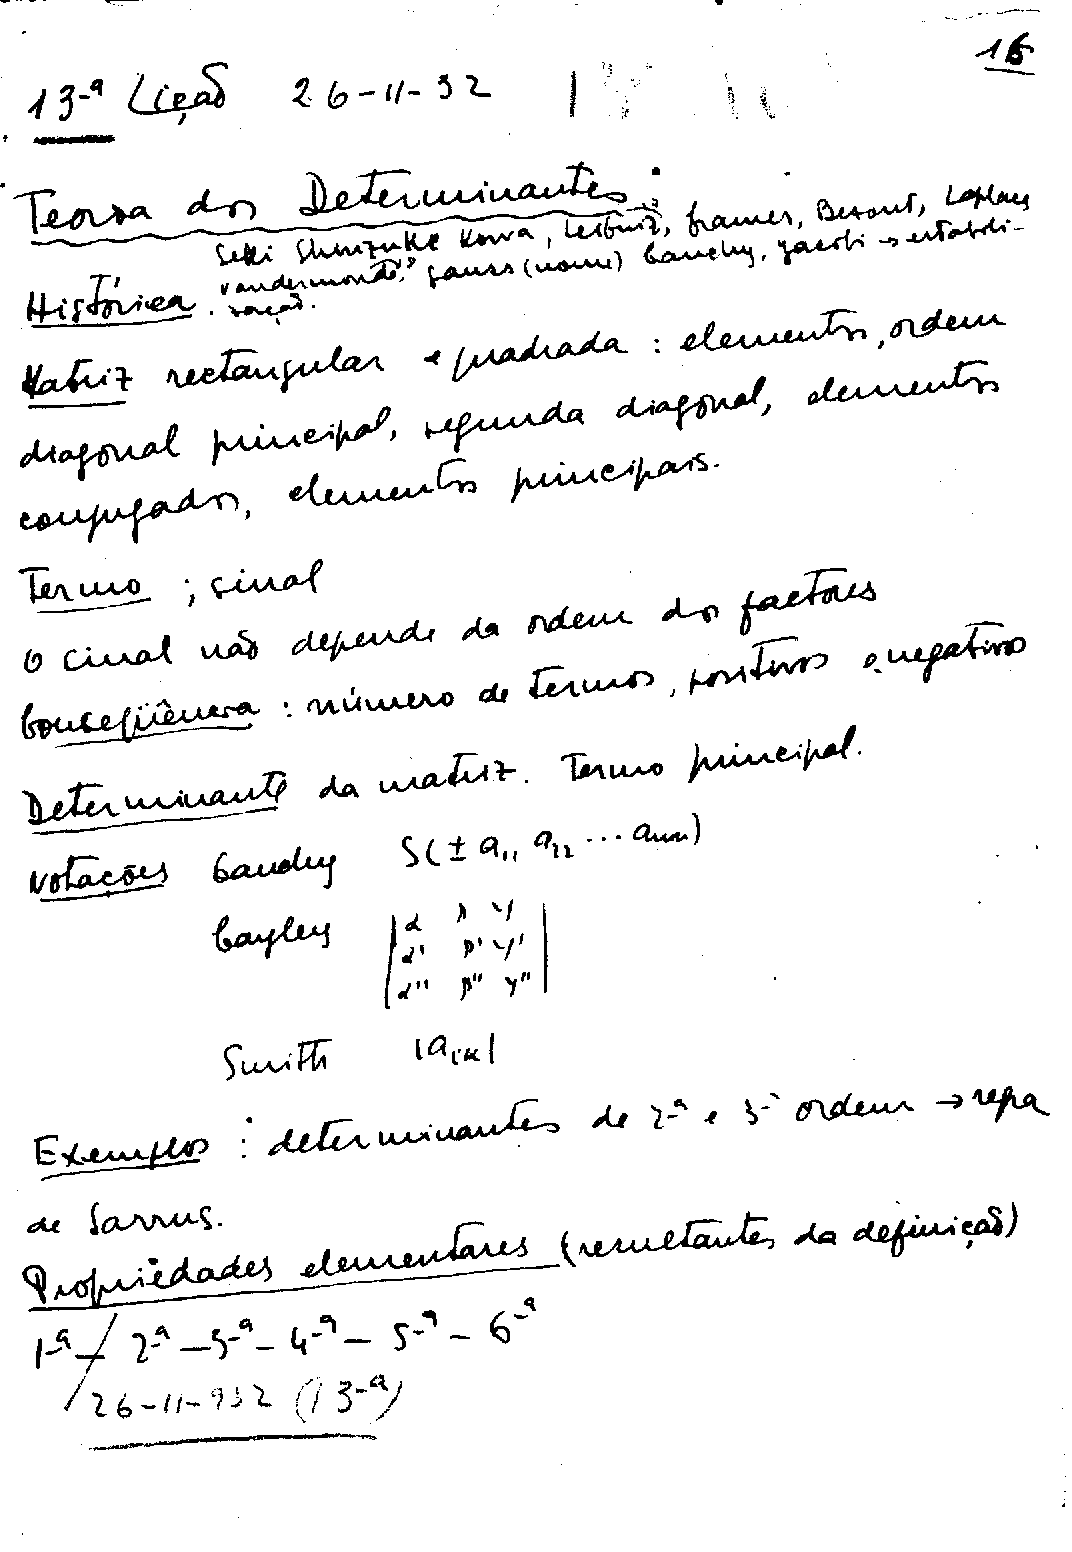 16
13-ª Lição 26-11-32
Teoria dos Determinantes:
Seki Shinzuke Kowa, Leibniz, Cramer, Bezout, Laplace
Histórica. Vandermonde, Gauss (nome) Cauchy, Jacobi → estabili-
zação.
Matriz rectangular e quadrada : elementos, ordem
diagonal principal, segunda diagonal, elementos
conjugados, elementos principais.
Termo ; sinal
O sinal não depende da ordem dos factores
Conseqüência : número de termos, positivos e negativos
Determinante da matriz. Termo principal.
Notações Cauchy S(± a₁₁ a₂₂ ... aₙₙ)
Cayley | α β γ |
| α' β' γ' |
| α'' β'' γ'' |
Smith |aᵢₖ|
Exemplos : determinantes de 2-ª e 3-ª ordem → regra
de Sarrus.
Propriedades elementares (resultantes da definição)
1-ª / 2-ª – 3-ª – 4-ª – 5-ª – 6-ª
26-11-932 (13-ª)